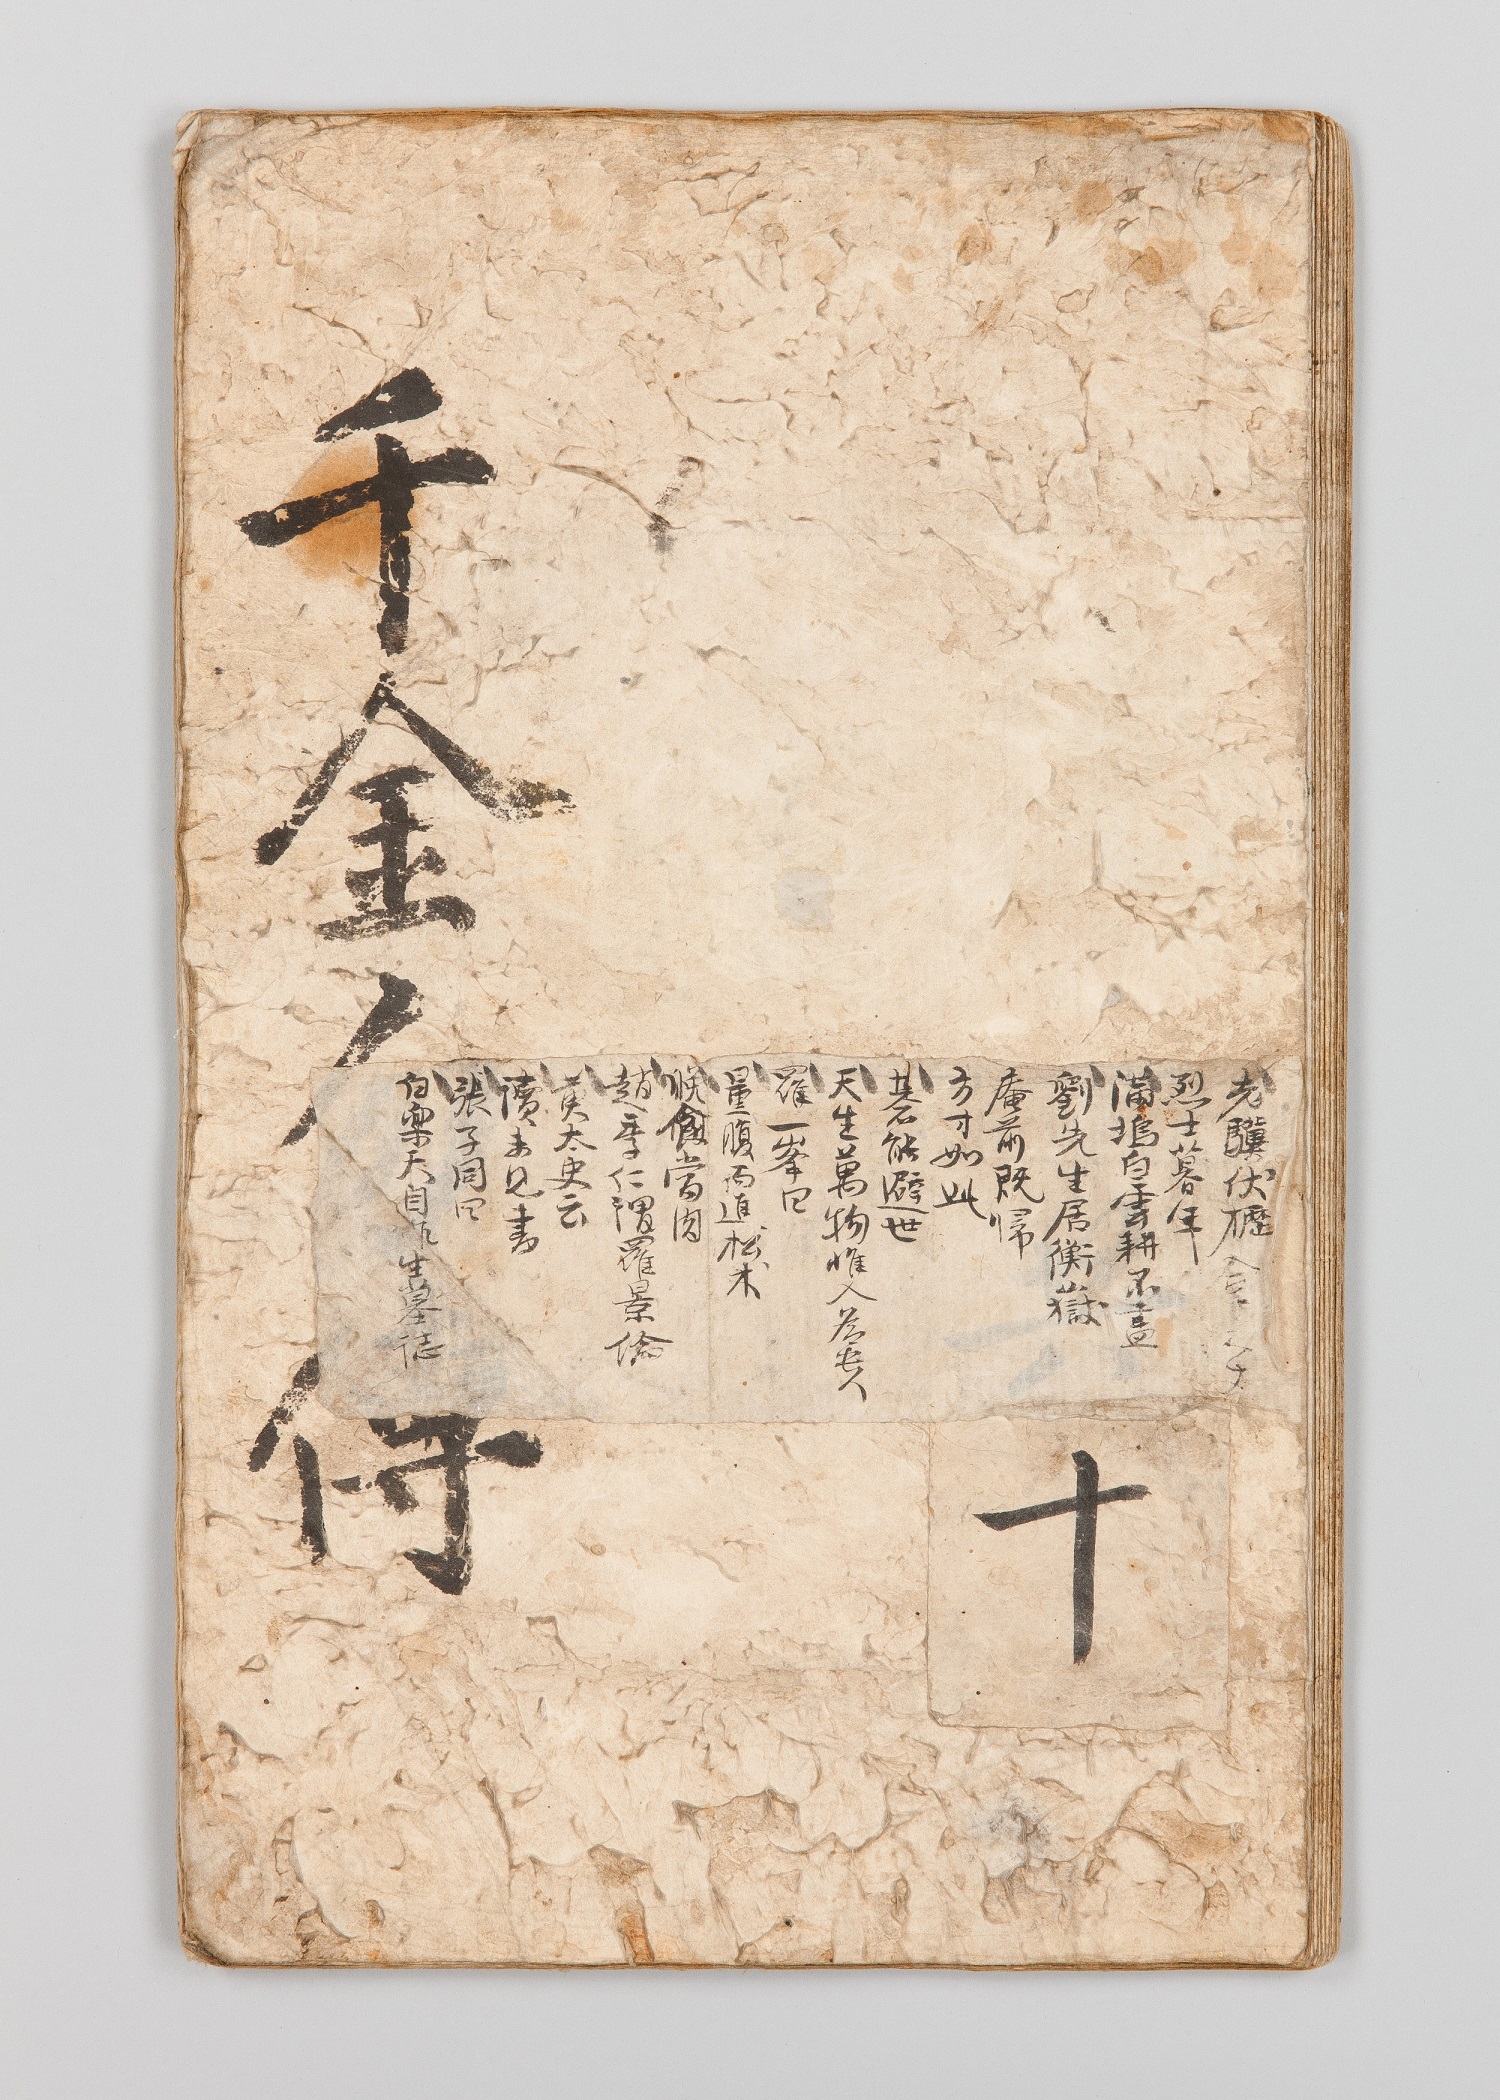 千金
得
老驥伏櫪
烈士暮年
滿塢白雲耕不盡
劉先生居衡嶽
庵前既歸
方寸如此
碁能避世
天生萬物惟人爲貴人
羅一峯曰
量腹而進松朮
晩食當肉
趙季仁謂羅景綸
黄太史云
讀未見書
張子同曰
白樂天自作生墓誌
十